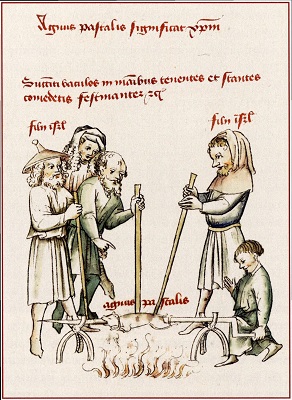 Agnus pascalis significat xpm
Succinti baculos in manibus tenentes et stantes
comedetis festinanter
filii isrl
filii isrl
agnus pascalis